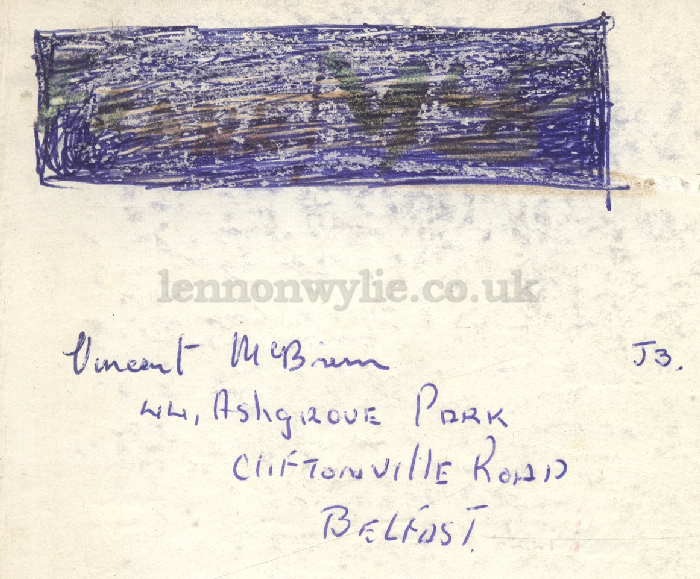 lennonwylie.co.uk
Vincent J3.
44, Ashgrove Park
Cliftonville Road
Belfast.